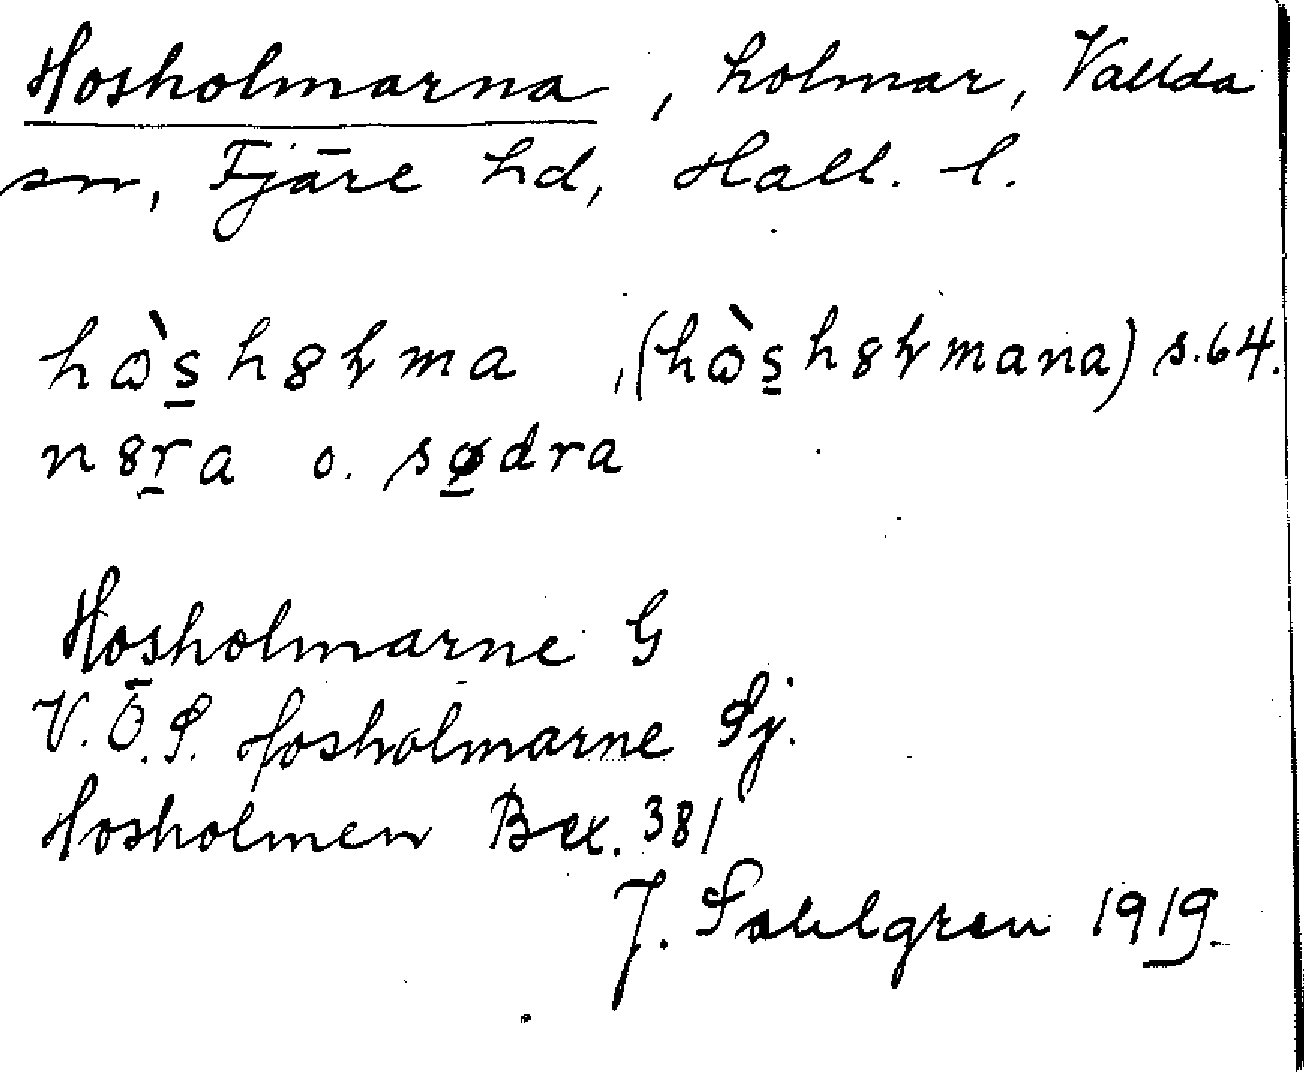 Hosholmarna, holmar, Vallda
sn, Fjäre hd, Hall. l.
hɷ̀s̱h8ɫma, (hɷ̀s̱h8ɫmana) s. 64.
n8ṟa o. sø̱dra
Hosholmarne G
V. Ö. S. Hosholmarne Sj.
Hosholmen Bex. 381
J. Sahlgren 1919.